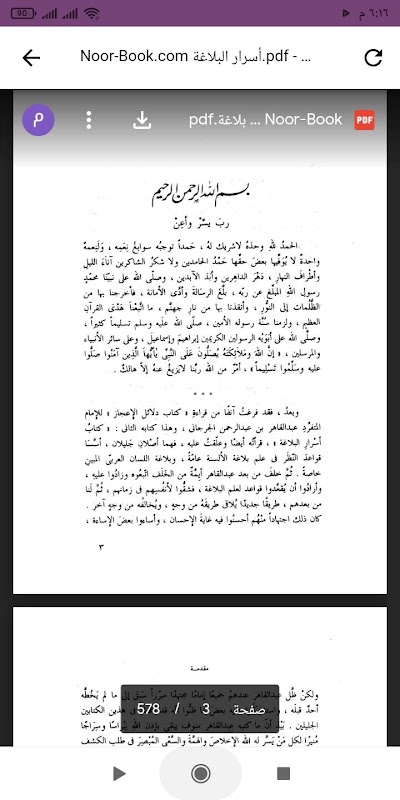 ٦:١٦ م
90
Noor-Book.com أسرار البلاغة.pdf - ...
م
Noor-Book ... بلاغة.pdf
PDF
بسم الله الرحمن الرحيم
ربِّ يسِّرْ وأعِنْ
الحمدُ للهِ وحدَهُ لاشريك لهُ ، حَمداً توجبُه سوابغُ نِعَمِه ، وَلَنِعمةٌ
واحدةٌ لا يُوَفِّيها بعضَ حقِّها حَمْدُ الحامدين ولا شكرُ الشاكرين آناءَ الليل
وأطرافَ النهارِ ، دَهْرَ الداهِرين وأبدَ الآبدين ، وصلَّى الله على نبيّنا محمَّدٍ
رسولِ اللهِ المبلّغِ عن ربّه ، بلَّغَ الرسالةَ وأدّى الأمانة ، فأخرجنا بها من
الظُّلُماتِ إلى النُّورِ ، وأنقذنا بها من نارِ جهنَّم ، ما اتَّبعْنا هَدْىَ القرآنِ
العظيم ، ولزمنا سنَّة رسوله الأمين ، صلَّى الله عليه وسلم تسليماً كثيراً ،
وصلَّى الله على أبَوَيْه الرسولين الكريمين إبراهيمَ وإسماعيلَ ، وعلى سائر الأنبياء
والمرسلين ، « إِنَّ اللهَ وَمَلَائِكَتَهُ يُصَلُّونَ عَلَى النَّبِىِّ يَأَيُّهَا الَّذِينَ آمَنُوا صَلُّوا
عليه وسَلِّمُوا تَسْلِيماً » ، أمْرٌ من الله ربِّنا لايَزيغُ عنه إلاّ هالكٌ .
* * *
وبعدُ ، فقد فرغتُ آنفًا من قراءةِ « كتاب دلائل الإعجاز » للإمام
المتفرِّدِ عبدالقاهر بن عبدالرحمن الجرجانى ، وهذا كتابه الثانى : « كتابُ
أسْرارِ البلاغة » ، قرأتُه أيضًا وعلّقت عليه ، فهما أصْلانِ جَليلان ، أسَّسَا
قواعدَ النَّظَر فى علم بلاغة الألسنة عامَّةً ، وبلاغة اللسان العربيّ المبين
خاصةً . ثُمَّ خَلَف من بعد عبدالقاهر أئِمَّةٌ من الخلَف اتَّبعُوه وزادُوا عليه ،
وأرادُوا أن يُقَعِّدوا قواعد لعلم البلاغة ، فشقُّوا لأنفُسهم فى زمانهم ، ثُمَّ لنا
من بعدهم ، طريقًا جديدًا يُلاقى طريقَهُ من وجهٍ ، ويُخالفه من وجهٍ آخر .
كان ذلك اجتهاداً منْهُم أحسنُوا فيه غايةَ الإحسان ، وأساءوا بعضَ الإساءة ،
٣
مقدمة
ولكنْ ظلَّ عبدالقاهر عندهم جميعًا إمامًا مجتهدًا مبرِّزاً سَبَق إلى ما لم يَخُطَّه
أحدٌ قبلَه ،
هذين الكتابين
صفحة 3 / 578
الجليلين . بَيْدَ أنّ ما كتبه عبدالقاهر سوف يبقَى بإذن الله نِبْراسًا وسِرَاجًا
مُنيرًا لكل مَنْ يَسَّر له اللهُ الإخلاصَ والهِمَّةَ والسَّعْىَ المُبْصِرَ فى طلب الكشف